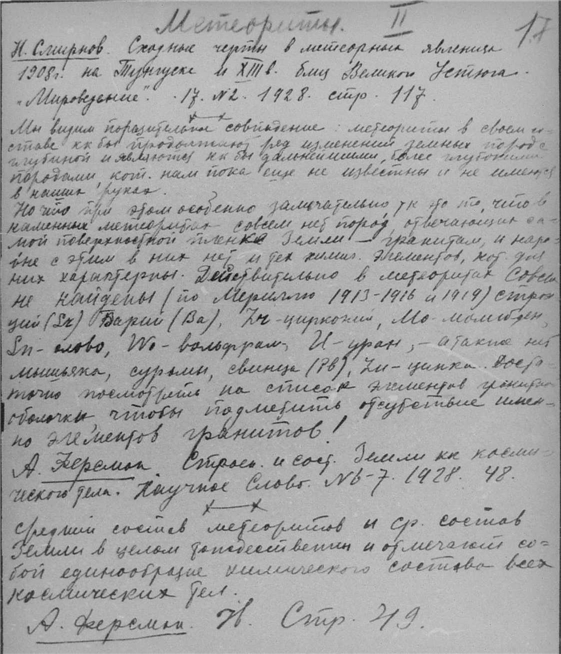 Метеориты. II 17
Н. Смирнов. Сходные черты в метеорных явлениях
1908г. на Тунгуске и XIII в. близ Великого Устюга.
"Мироведение". 17. №2. 1928. стр. 117.
Мы видим поразительное совпадение: метеориты в своем со-
ставе кк бы продолжают ряд изменений земных пород с
глубиной и являются кк бы дальнейшими, более глубокими
породами кот. нам пока еще не известны и не имеются
в наших руках.
Но что при этом особенно замечательно тк это то, что в
каменных метеоритах совсем нет пород, отвечающих са-
мой поверхностной пленке Земли – гранитам, и нарав-
не с этим в них нет и тех химич. элементов, кот. для
них характерны. Действительно в метеоритах совсем
не найдены (по Мериллю 1913-1916 и 1919) строн-
ций (Sr) Барий (Ba), Zr-цирконий, Mo-молибден,
Sn-олово, Wo-вольфрам, U-уран, – а также нет
мышьяка, сурьмы, свинца (Pb), Zn-цинка. Доста-
точно посмотреть на список элементов гранитной
оболочки чтобы подметить отсутствие имен-
но элементов гранитов!
А. Ферсман. Строен. и сост. Земли кк косми-
ческого тела. Научное Слово. №6-7. 1928. 48.
Средний состав метеоритов и ср. состав
Земли в целом тождественен и отмечают со-
бой единообразие химического состава всех
космических тел.
А. Ферсман. Стр. 49.